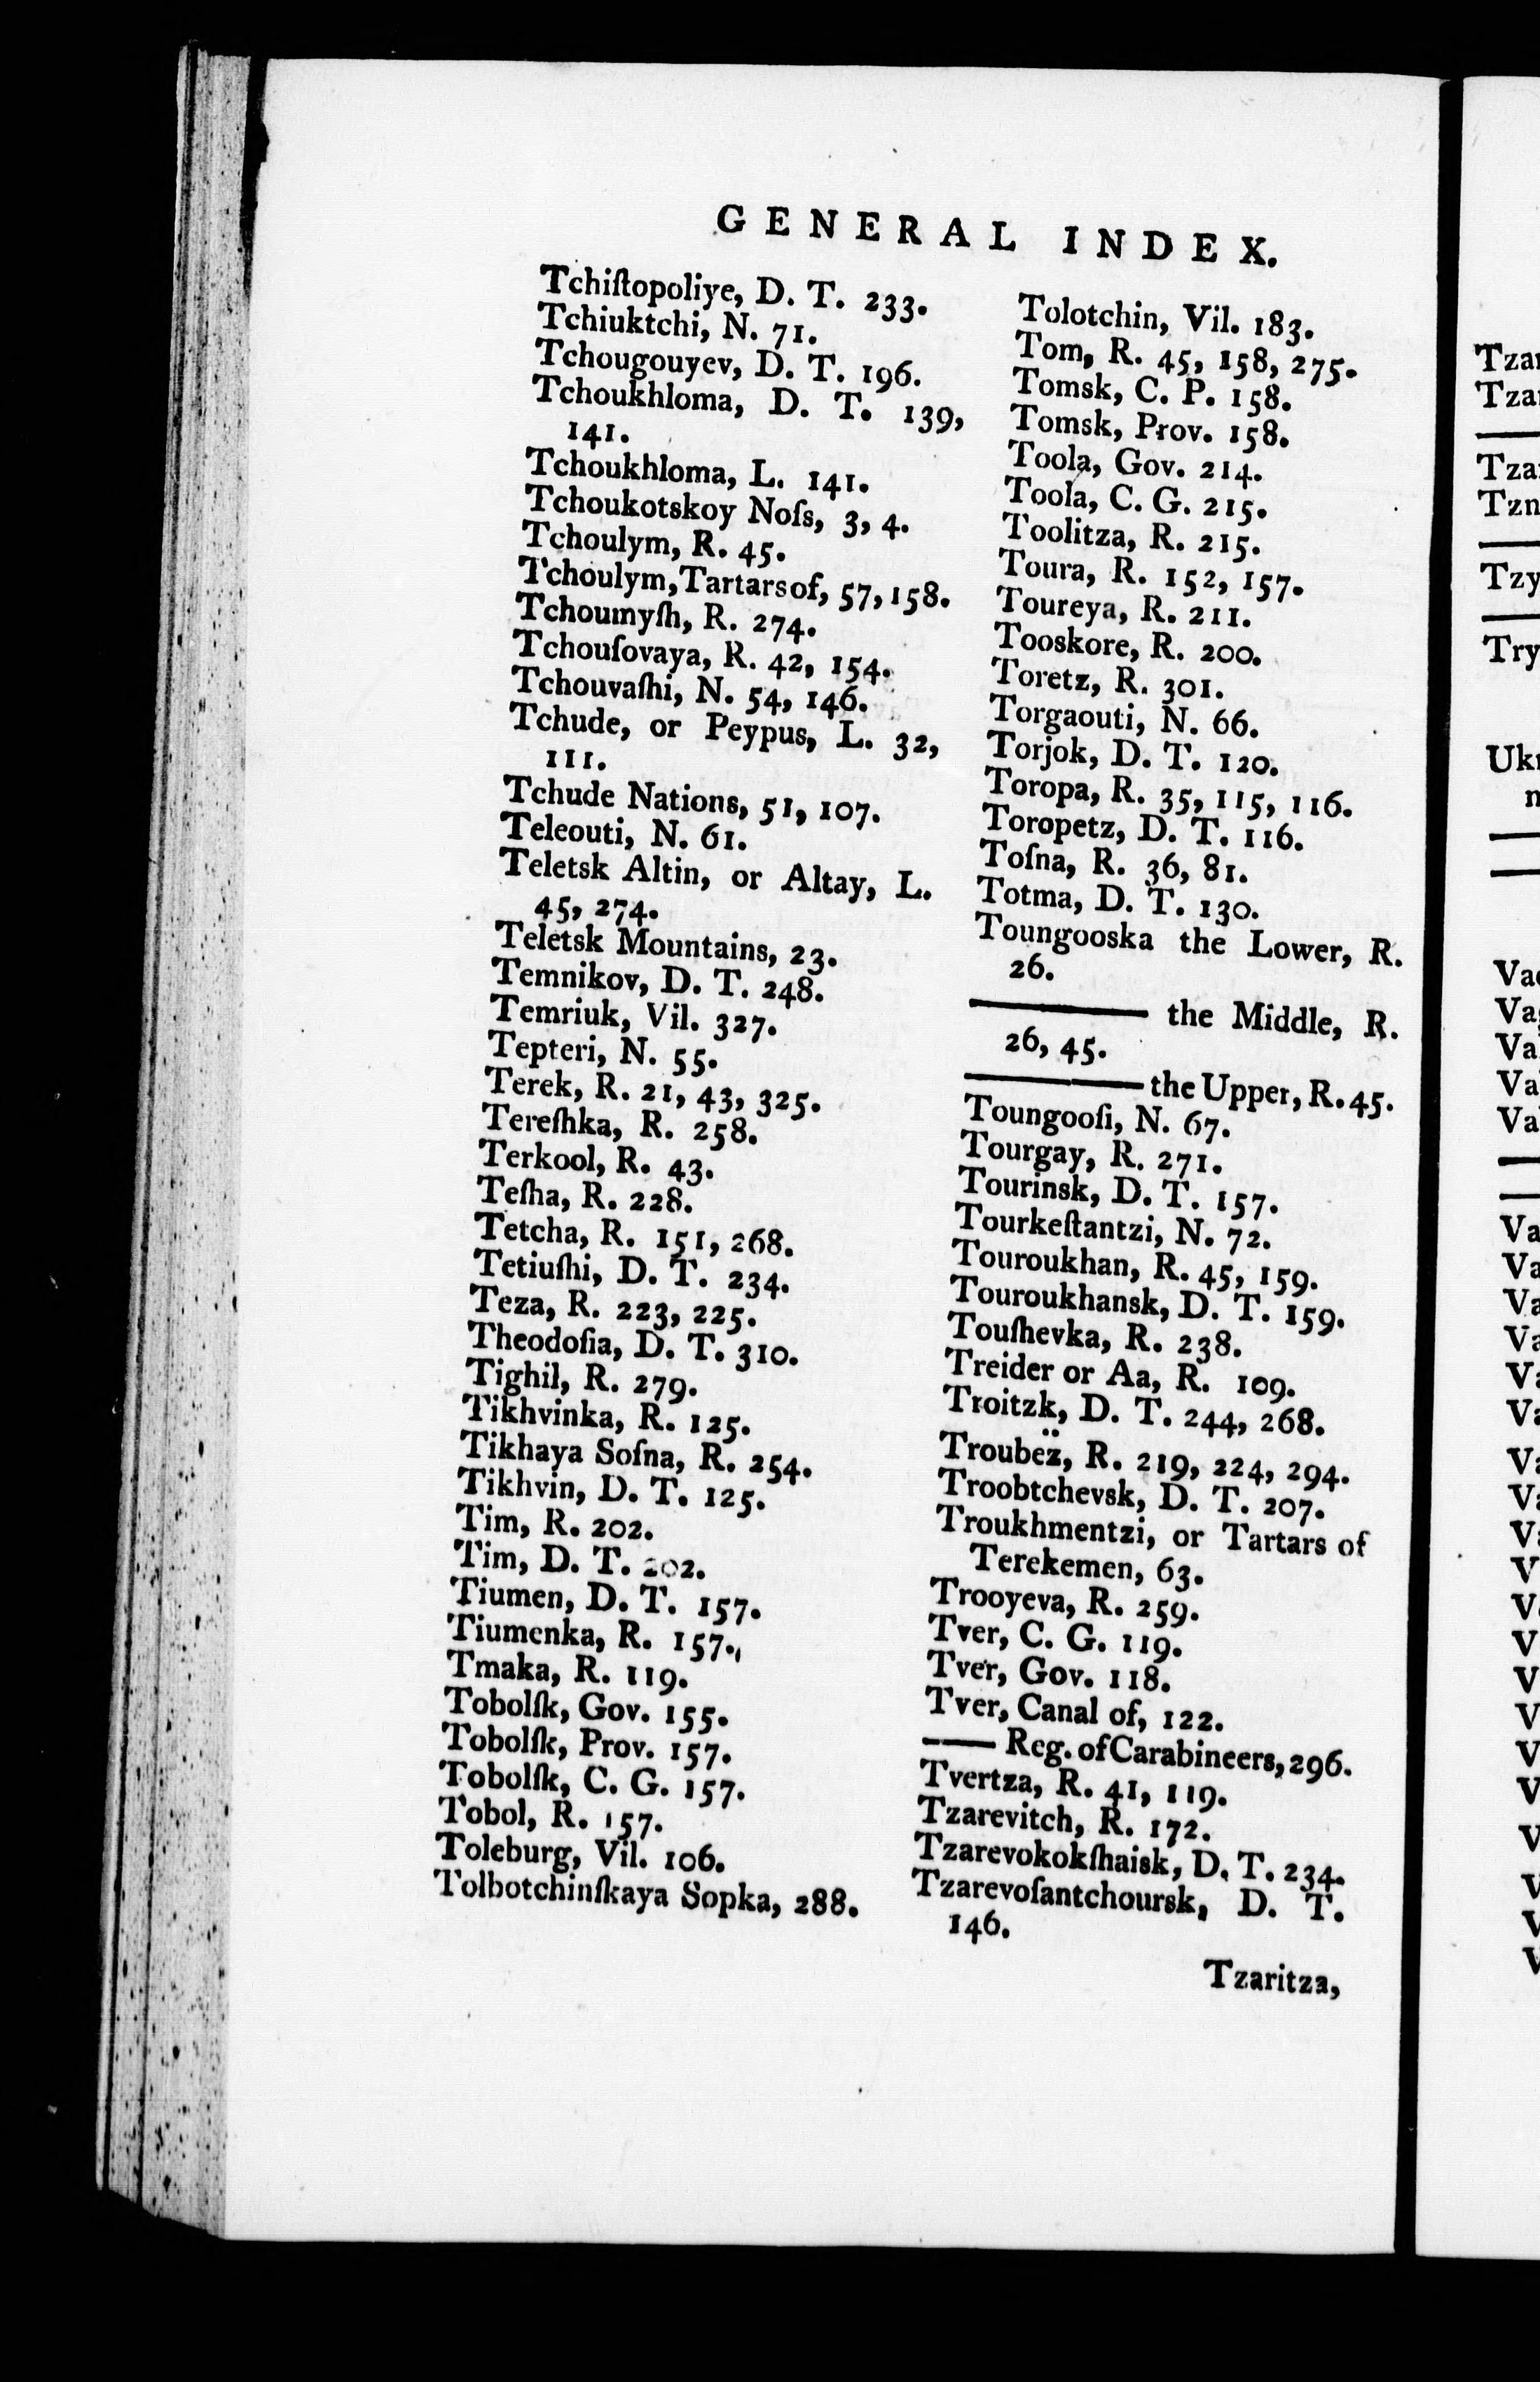 GENERAL INDEX.
Tchiſtopoliye, D. T. 233.
Tchiuktchi, N. 71.
Tchougouyev, D. T. 196.
Tchoukhloma, D. T. 139,
141.
Tchoukhloma, L. 141.
Tchoukotskoy Noſs, 3, 4.
Tchoulym, R. 45.
Tchoulym, Tartars of, 57, 158.
Tchoumyſh, R. 274.
Tchouſovaya, R. 42, 154.
Tchouvaſhi, N. 54, 146.
Tchude, or Peypus, L. 32,
111.
Tchude Nations, 51, 107.
Teleouti, N. 61.
Teletsk Altin, or Altay, L.
45, 274.
Teletsk Mountains, 23.
Temnikov, D. T. 248.
Temriuk, Vil. 327.
Tepteri, N. 55.
Terek, R. 21, 43, 325.
Tereſhka, R. 258.
Terkool, R. 43.
Teſha, R. 228.
Tetcha, R. 151, 268.
Tetiuſhi, D. T. 234.
Teza, R. 223, 225.
Theodoſia, D. T. 310.
Tighil, R. 279.
Tikhvinka, R. 125.
Tikhaya Soſna, R. 254.
Tikhvin, D. T. 125.
Tim, R. 202.
Tim, D. T. 202.
Tiumen, D. T. 157.
Tiumenka, R. 157.
Tmaka, R. 119.
Tobolſk, Gov. 155.
Tobolſk, Prov. 157.
Tobolſk, C. G. 157.
Tobol, R. 157.
Toleburg, Vil. 106.
Tolbotchinſkaya Sopka, 288.
Tolotchin, Vil. 183.
Tom, R. 45, 158, 275.
Tomsk, C. P. 158.
Tomsk, Prov. 158.
Toola, Gov. 214.
Toola, C. G. 215.
Toolitza, R. 215.
Toura, R. 152, 157.
Toureya, R. 211.
Tooskore, R. 200.
Toretz, R. 301.
Torgaouti, N. 66.
Torjok, D. T. 120.
Toropa, R. 35, 115, 116.
Toropetz, D. T. 116.
Toſna, R. 36, 81.
Totma, D. T. 130.
Toungooska the Lower, R.
26.
——— the Middle, R.
26, 45.
——— the Upper, R. 45.
Toungooſi, N. 67.
Tourgay, R. 271.
Tourinsk, D. T. 157.
Tourkeſtantzi, N. 72.
Touroukhan, R. 45, 159.
Touroukhansk, D. T. 159.
Touſhevka, R. 238.
Treider or Aa, R. 109.
Troitzk, D. T. 244, 268.
Troubëz, R. 219, 224, 294.
Troobtchevsk, D. T. 207.
Troukhmentzi, or Tartars of
Terekemen, 63.
Trooyeva, R. 259.
Tver, C. G. 119.
Tver, Gov. 118.
Tver, Canal of, 122.
—— Reg. of Carabineers, 296.
Tvertza, R. 41, 119.
Tzarevitch, R. 172.
Tzarevokokſhaisk, D. T. 234.
Tzarevoſantchoursk, D. T.
146.
Tzaritza,
Tzy
Try